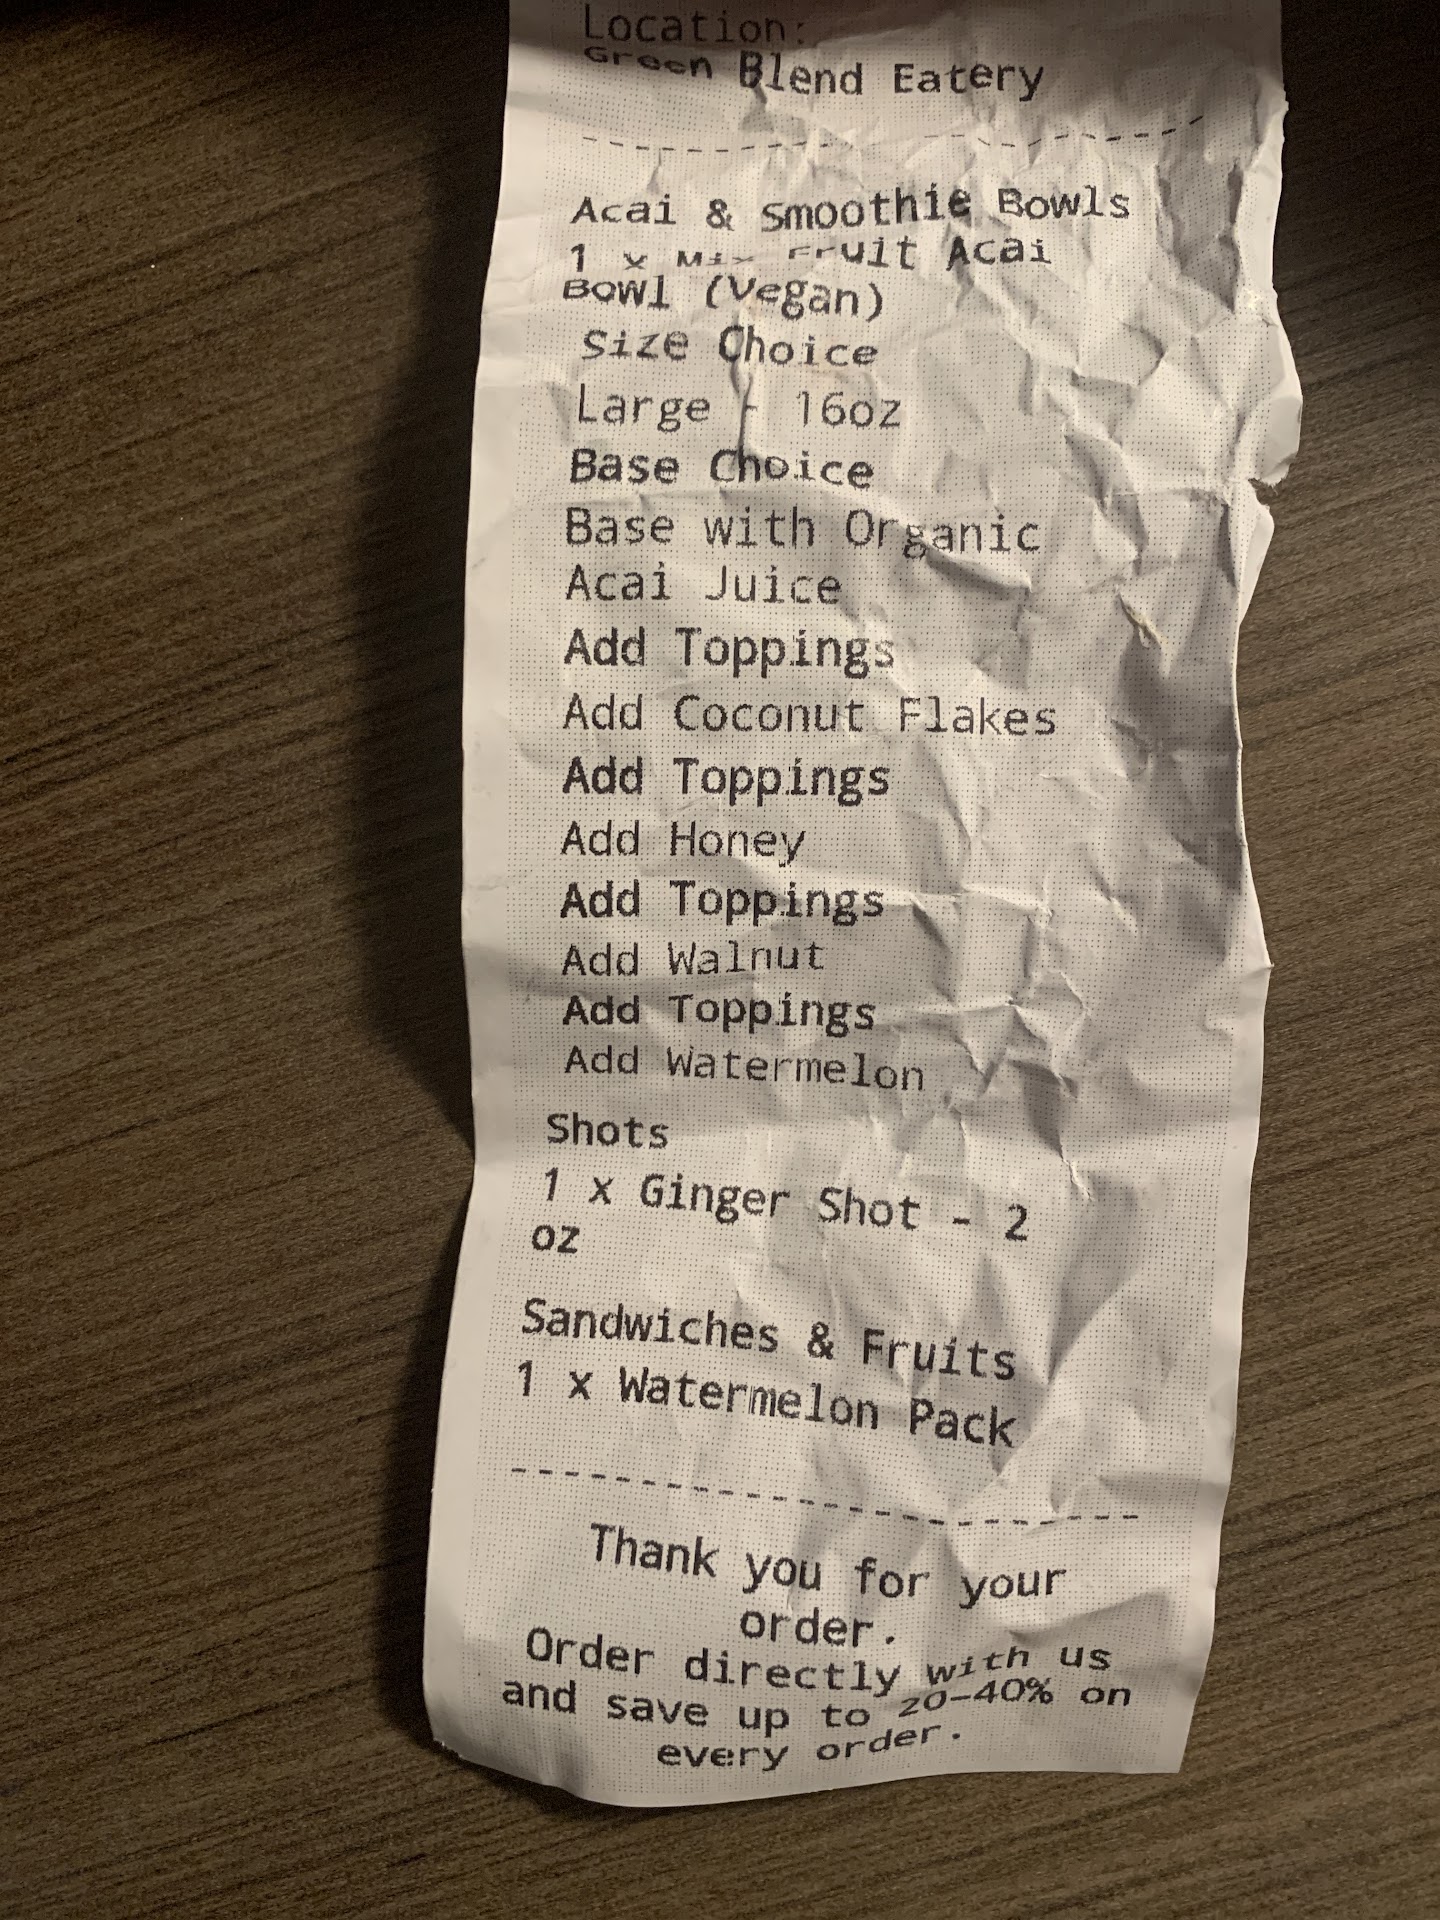 Location:
Green Blend Eatery
Acai & Smoothie Bowls
1 x Mix Fruit Acai
Bowl (Vegan)
Size Choice
Large - 16oz
Base Choice
Base with Organic
Acai Juice
Add Toppings
Add Coconut Flakes
Add Toppings
Add Honey
Add Toppings
Add Walnut
Add Toppings
Add Watermelon
Shots
1 x Ginger Shot - 2
oz
Sandwiches & Fruits
1 x Watermelon Pack
Thank you for your
order.
Order directly with us
and save up to 20-40% on
every order.